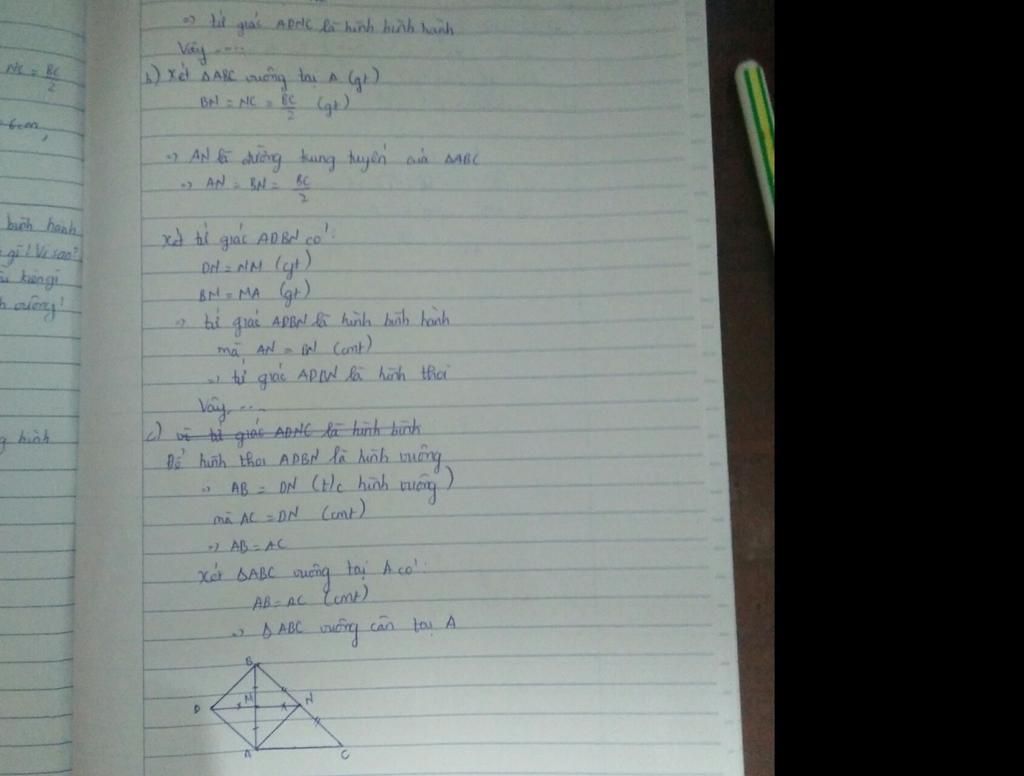 NC = BC/2
6cm,
bình hành
gì? Vì sao?
kiện gì
vuông?
hình
=> tứ giác ADNC là hình bình hành
Vậy ....
b) Xét ΔABC vuông tại A (gt)
BN = NC = BC/2 (gt)
=> AN là đường trung tuyến của ΔABC
=> AN = BN = BC/2
Xét tứ giác ADBN có:
DN = NM (gt)
BM = MA (gt)
=> tứ giác ADBN là hình bình hành
mà AN = BN (cmt)
=> tứ giác ADBN là hình thoi
Vậy ....
c) vì tứ giác ADNC là hình bình
Để hình thoi ADBN là hình vuông
=> AB = DN (t/c hình vuông)
mà AC = DN (cmt)
=> AB = AC
Xét ΔABC vuông tại A có:
AB = AC (cmt)
=> ΔABC vuông cân tại A
B
M N
D
A C